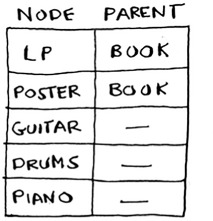 NODE PARENT
LP BOOK
POSTER BOOK
GUITAR —
DRUMS —
PIANO —